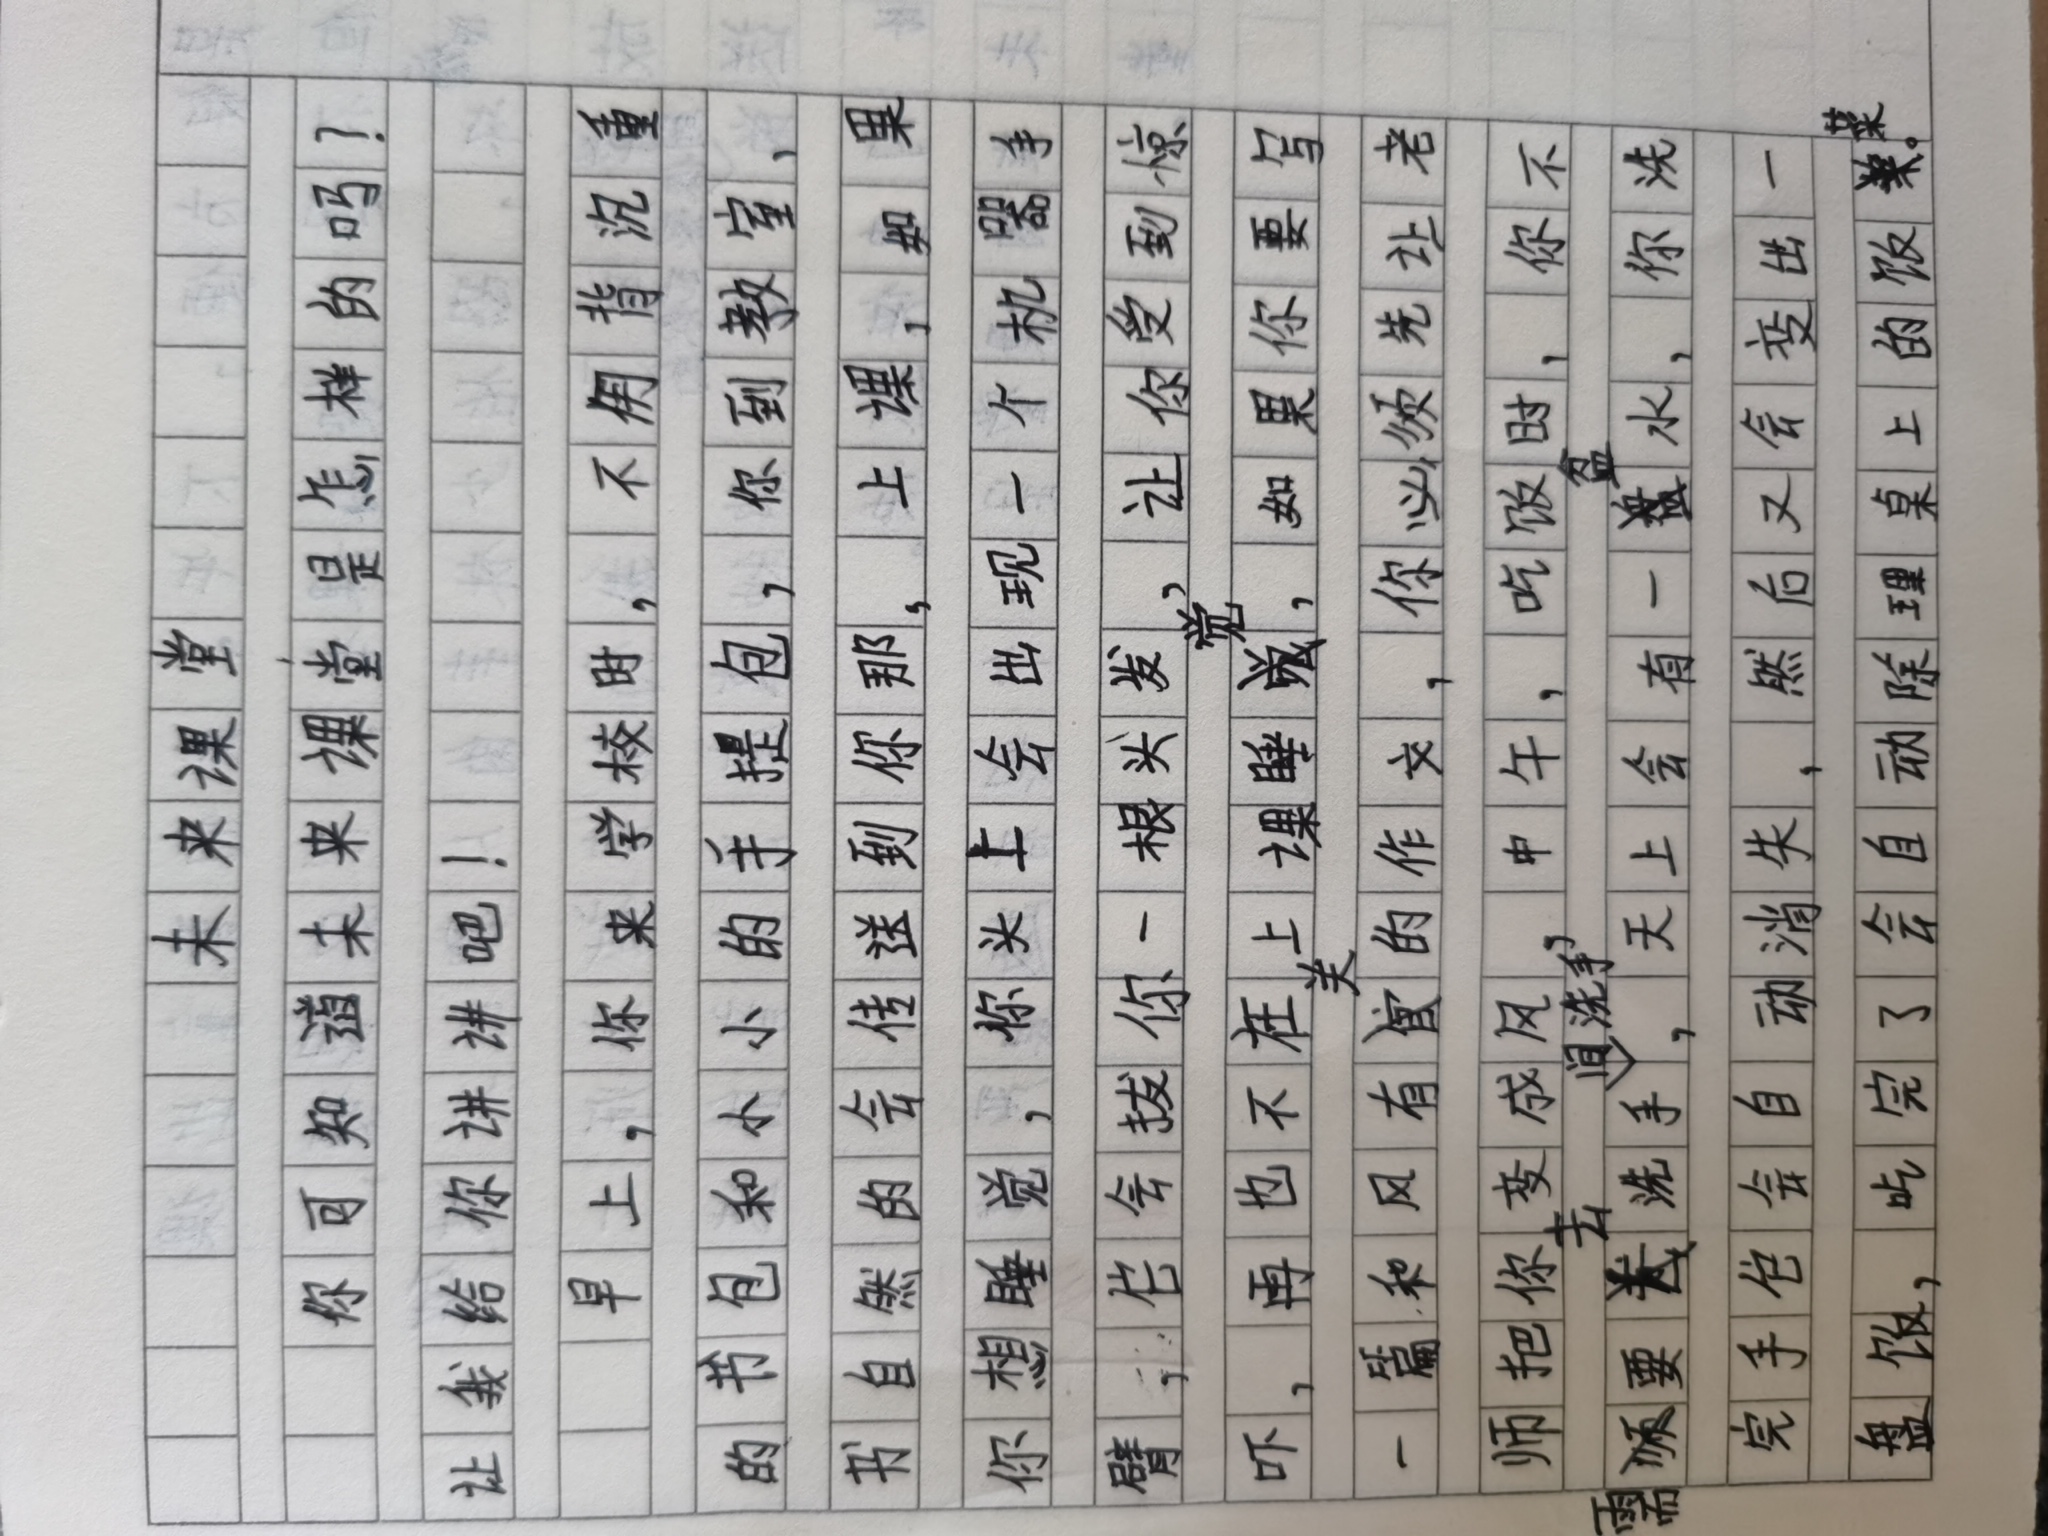 未来课堂
你可知道未来课堂是怎样的吗?
让我给你讲讲吧!
早上,你来学校时,不用背沉重
的书包和小小的手提包,你到教室,
书自然的会传送到你那,上课,如果
你想睡觉,你头上会出现一个机器手
臂,它会拔你一根头发,让你受到惊
吓,再也不在上课睡觉,如果你要写
一篇和风有关的作文,你必须先让老
师把你变成风 中午,吃饭时,你不
需要去洗手间洗手,天上会有一盆水,你洗
完手它会自动消失,然后又会变出一
盘饭,吃完了会自动除理桌上的饭菜。